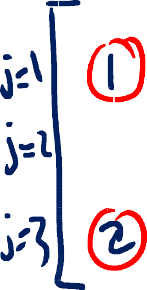 j=1 1
j=2
j=3 2